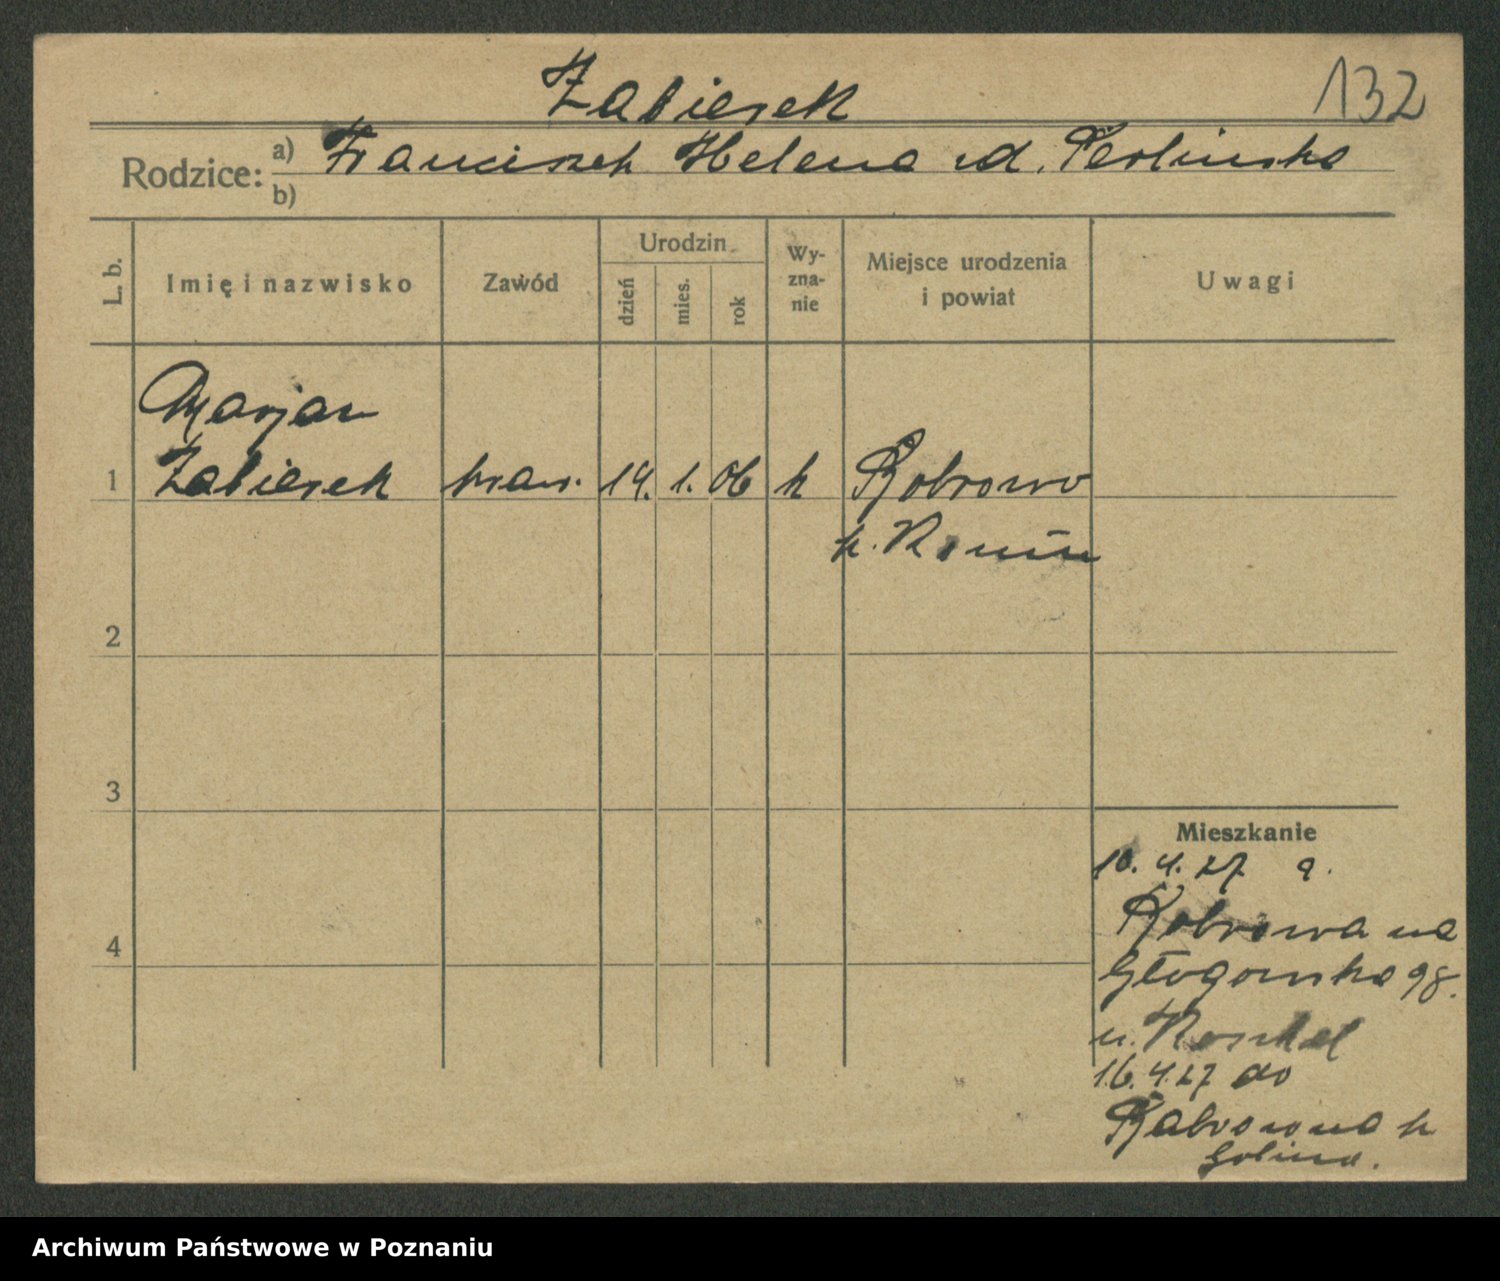 Zabierek
132
Rodzice:
a) Franciszek Helena zd. Perlinska
b)
L. b.
Imię i nazwisko
Zawód
Urodzin
dzień
mies.
rok
Wy-
zna-
nie
Miejsce urodzenia
i powiat
Uwagi
Marjan
1 Zabierek 14. 1. 06 k Bobrowo
p. Konin
2
3
4
Mieszkanie
10. 4. 27
Bobrowa na
Głogowska 98.
u.
16. 4. 27 do
Bobrowa p
Golina.
Archiwum Państwowe w Poznaniu